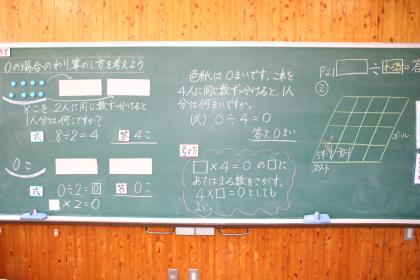 0の場合のわり算のし方を考えよう
8こを2人に同じ数ずつ分けると
1人分は何こですか?
式 8÷2=4 答 4こ
0こ
式 0÷2=0 答 0こ
□×2=0
色紙は0まいです。これを
4人に同じ数ずつ分けると、1人
分は何まいですか。
(式) 0÷4=0
答え0まい
□×4=0の□に
あてはまる数をさがす。
4×□=0としても
よい。
P21 □÷ =答
②
ゴール
スタート